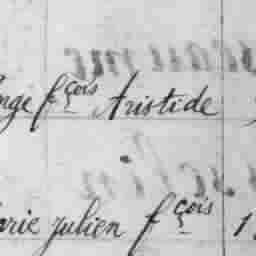 ange fçois Aristide
arie julien fçois 1